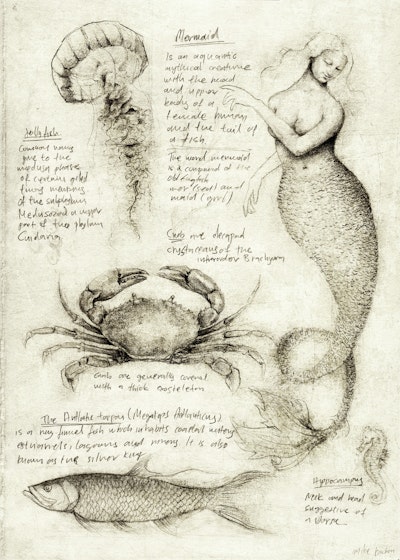 Mermaid
Is an aquatic
mythical creature
with the head
and upper
body of a
female human
and the tail of
a fish.
The word mermaid
is a compound of the
old english
mere (sea) and
maid (girl)
Jellyfish
Common name
give to the
medusa phases
of certain
members
of the subphylum
Medusozoa a major
part of the phylum
Cnidaria
Crab are decapod
crustaceans of the
Brachyura
Crabs are generally covered
with a thick exoskeleton
The Atlantic tarpon (Megalops Atlanticus)
is a ray finned fish which inhabits coastal waters
estuaries, lagoons and rivers. It is also
known as the silver king
Hippocampus
Neck and head
suggestive of
a horse